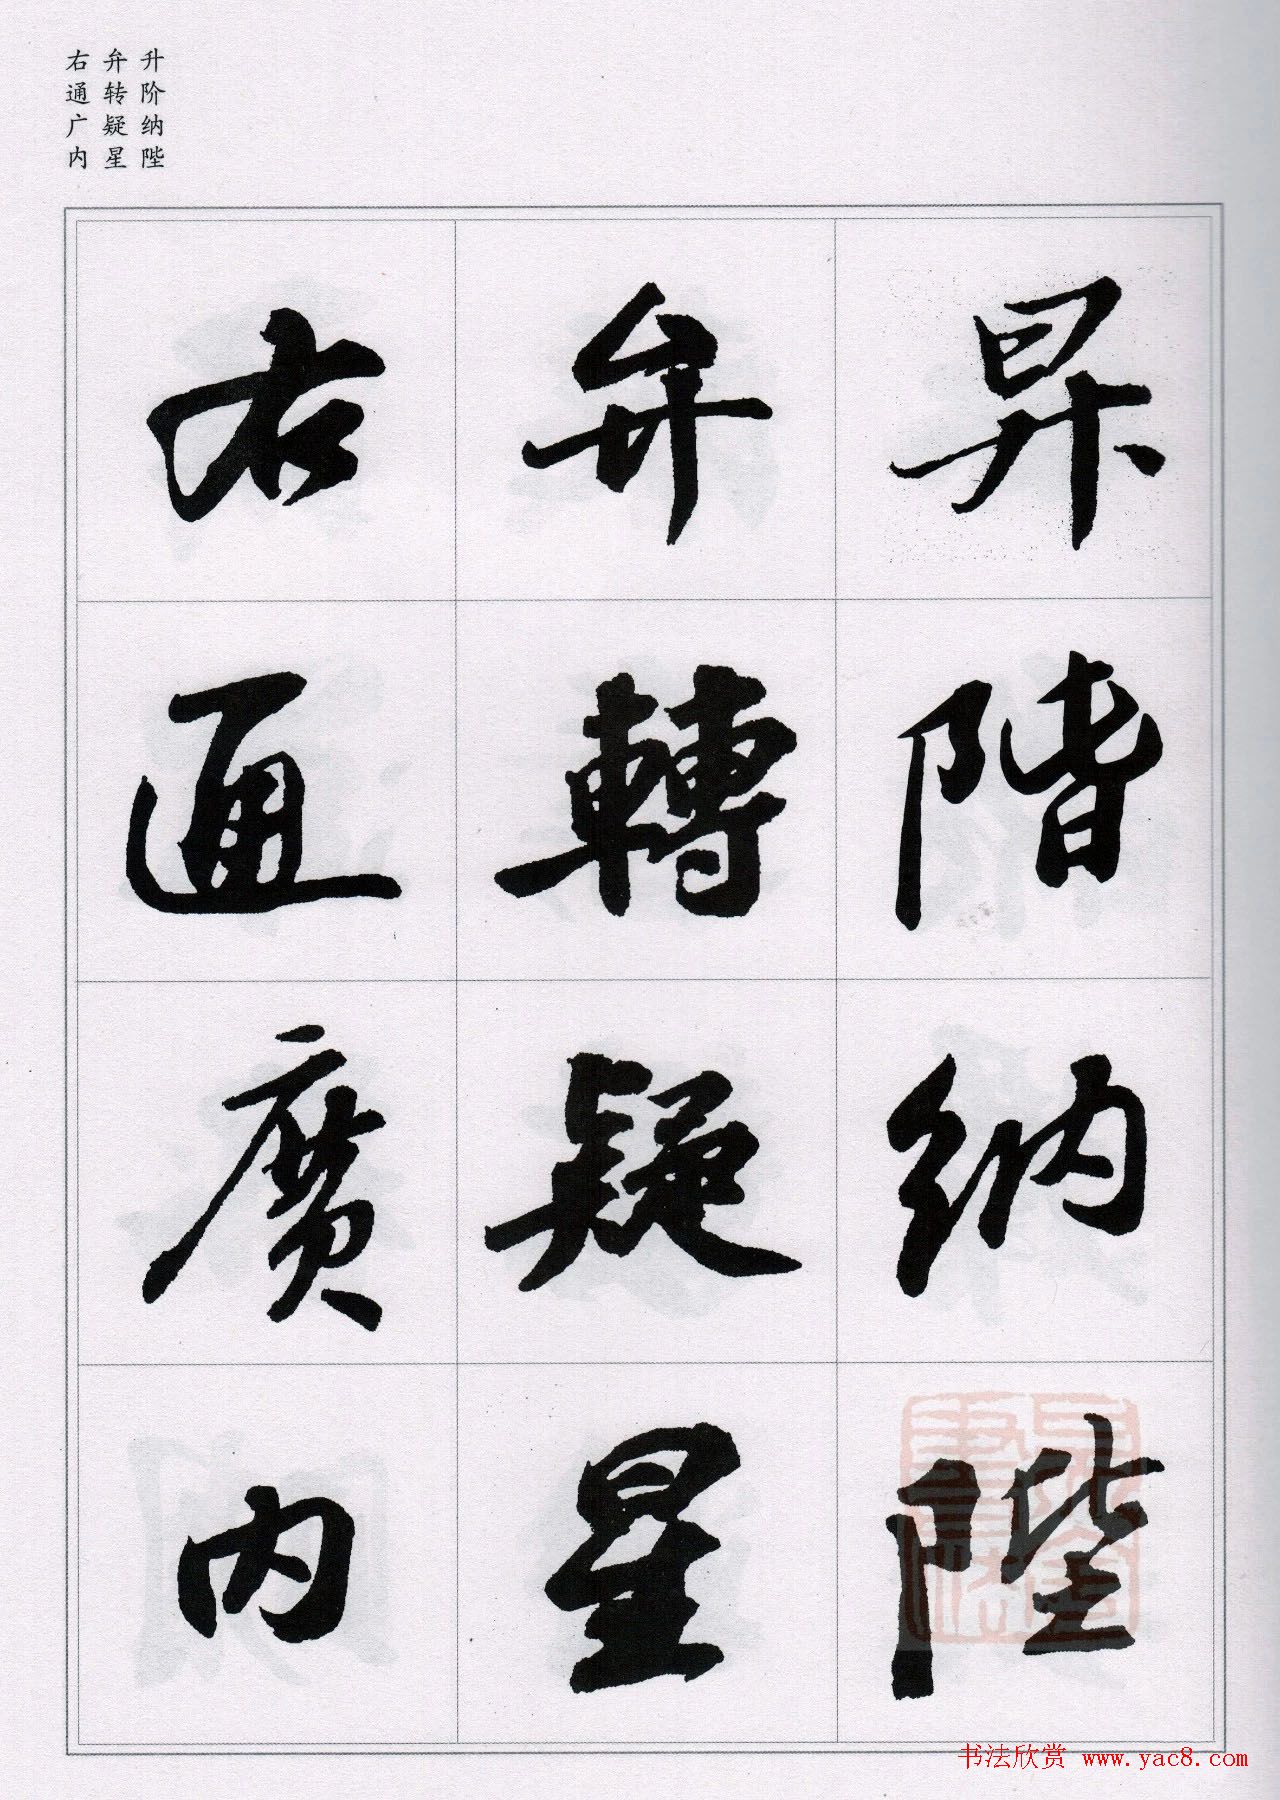 升阶纳陛
弁转疑星
右通广内
昇階纳陛
弁轉疑星
右通廣内
书法欣赏 www.yac8.com